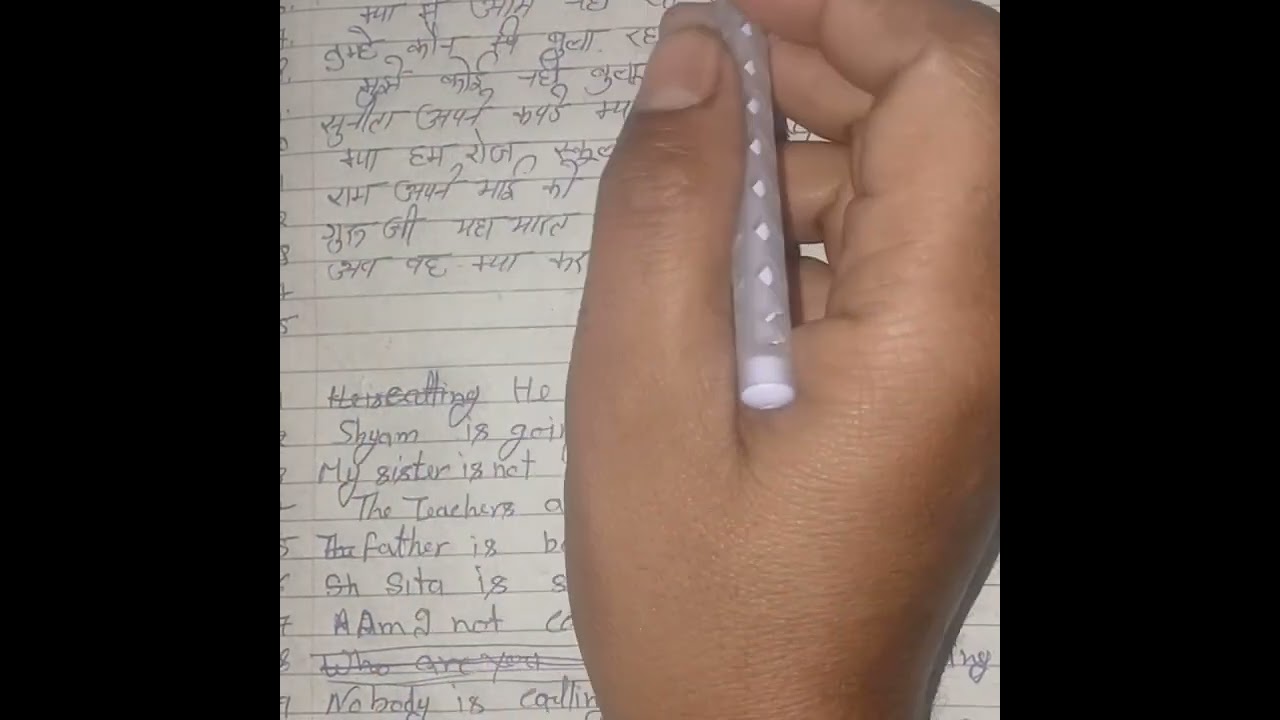 क्या मैं आम नहीं
तुम्हे कौन बुला रहा
मुझे कोई नही बुला
सुनीता अपने कपडे
क्या हम रोज स्कूल
राम अपने भाई को
गुरु जी महाभारत
अब वह क्या कर
He is calling He
Shyam is goin
My sister is not
The Teachers a
The father is be
Sh Sita is s
A Am I not co
Who are you ing
Nobody is callin